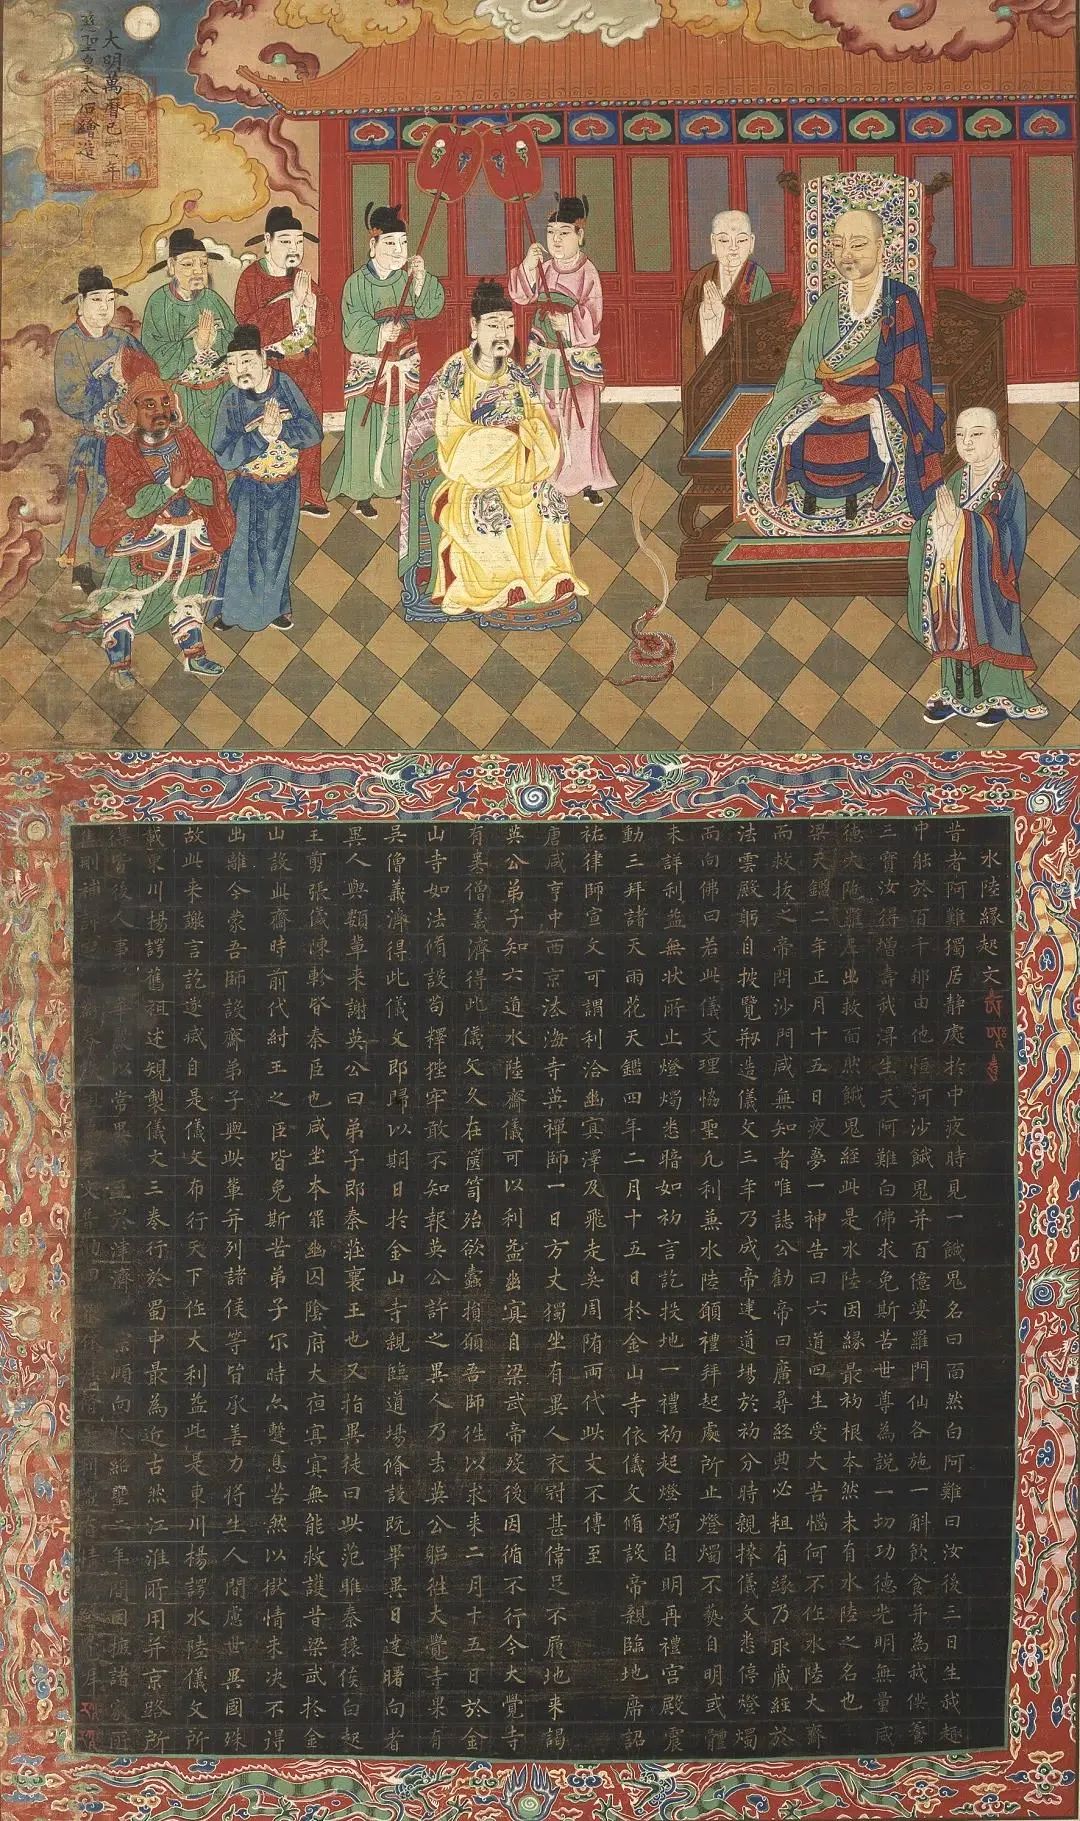 大明萬曆己年
慈聖皇太后繪造
水陸緣起文
昔者阿難獨居靜處於中夜時見一餓鬼名曰面然白阿難曰汝後三日生我趣
中能於百千那由他恒河沙餓鬼并百億婆羅門仙各施一斛飲食并為我供養
三寶汝得增壽我得生天阿難白佛求免斯苦世尊為說一切功德光明無量威
德大陁羅尼出救面然餓鬼經此是水陸因緣最初根本然未有水陸之名也
梁天鑑二年正月十五日夜夢一神告曰六道四生受大苦惱何不作水陸大齋
而救拔之帝問沙門咸無知者唯誌公勸帝曰廣尋經典必粗有緣乃取藏經於
法雲殿躬自披覽剏造儀文三年乃成帝建道場於初分時親捧儀文悉停燈燭
而向佛曰若此儀文理恊聖凡利兼水陸願禮拜起處所止燈燭不爇自明或體
未詳利益無狀所止燈燭悉暗如初言訖投地一禮初起燈燭自明再禮宮殿震
動三拜諸天雨花天鑑四年二月十五日於金山寺依儀文脩設帝親臨地席詔
祐律師宣文可謂利洽幽冥澤及飛走矣周隋兩代此文不傳至
唐咸亨中西京法海寺英禪師一日方丈獨坐有異人衣冠甚偉足不履地來謁
英公弟子知六道水陸齋儀可以利益幽冥自梁武帝歿後因循不行今大覺寺
有吳僧義濟得此儀文久在篋笥殆欲蠹損願吾師徃以求來二月十五日於金
山寺如法脩設苟釋狴牢敢不知報英公許之異人乃去英公躬徃大覺寺果有
吳僧義濟得此儀文即歸以期日於金山寺親臨道場脩設既畢異日達曙向者
異人與類輩來謝英公曰弟子即秦莊襄王也又指異徒曰此范雎秦穰侯白起
王剪張儀陳軫皆秦臣也咸坐本罪幽囚陰府大夜冥冥無能救護昔梁武於金
山設此齋時前代紂王之臣皆免斯苦弟子尓時亦蹔息苦然以獄情未決不得
出離今蒙吾師設齋弟子與此輩并列諸侯等皆承善力將生人間慮世異國殊
故此來謝言訖遂滅自是儀文布行天下作大利益此是東川楊諤水陸儀文所
載東川楊諤舊祖述規製儀文三卷行於蜀中最為近古然江淮所用并京路所
後人事以常果津濟願向於紹聖二年間因據諸家所
刪補詳